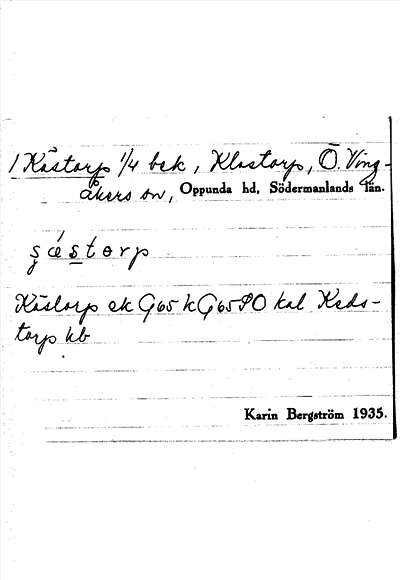 1 Kästorp 1/4 bek, Klastorp, Ö. Ving-
åkers sn, Oppunda hd, Södermanlands län.
ʂǽstorp
Kästorp ek G65 k G65 PO kal Keds-
torp kb
Karin Bergström 1935.